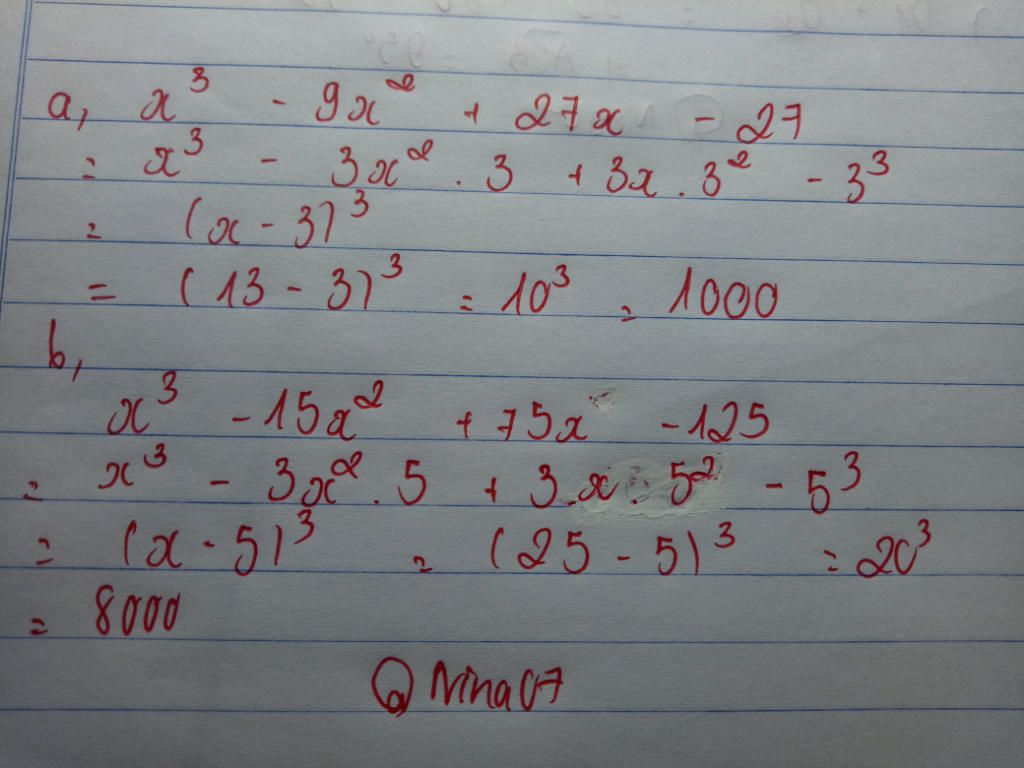 a, x³ - 9x² + 27x - 27
= x³ - 3x² . 3 + 3x . 3² - 3³
= (x - 3)³
= (13 - 3)³ = 10³ = 1000
b,
x³ - 15x² + 75x - 125
= x³ - 3x² . 5 + 3 . x . 5² - 5³
= (x - 5)³ = (25 - 5)³ = 20³
= 8000
@Nina07